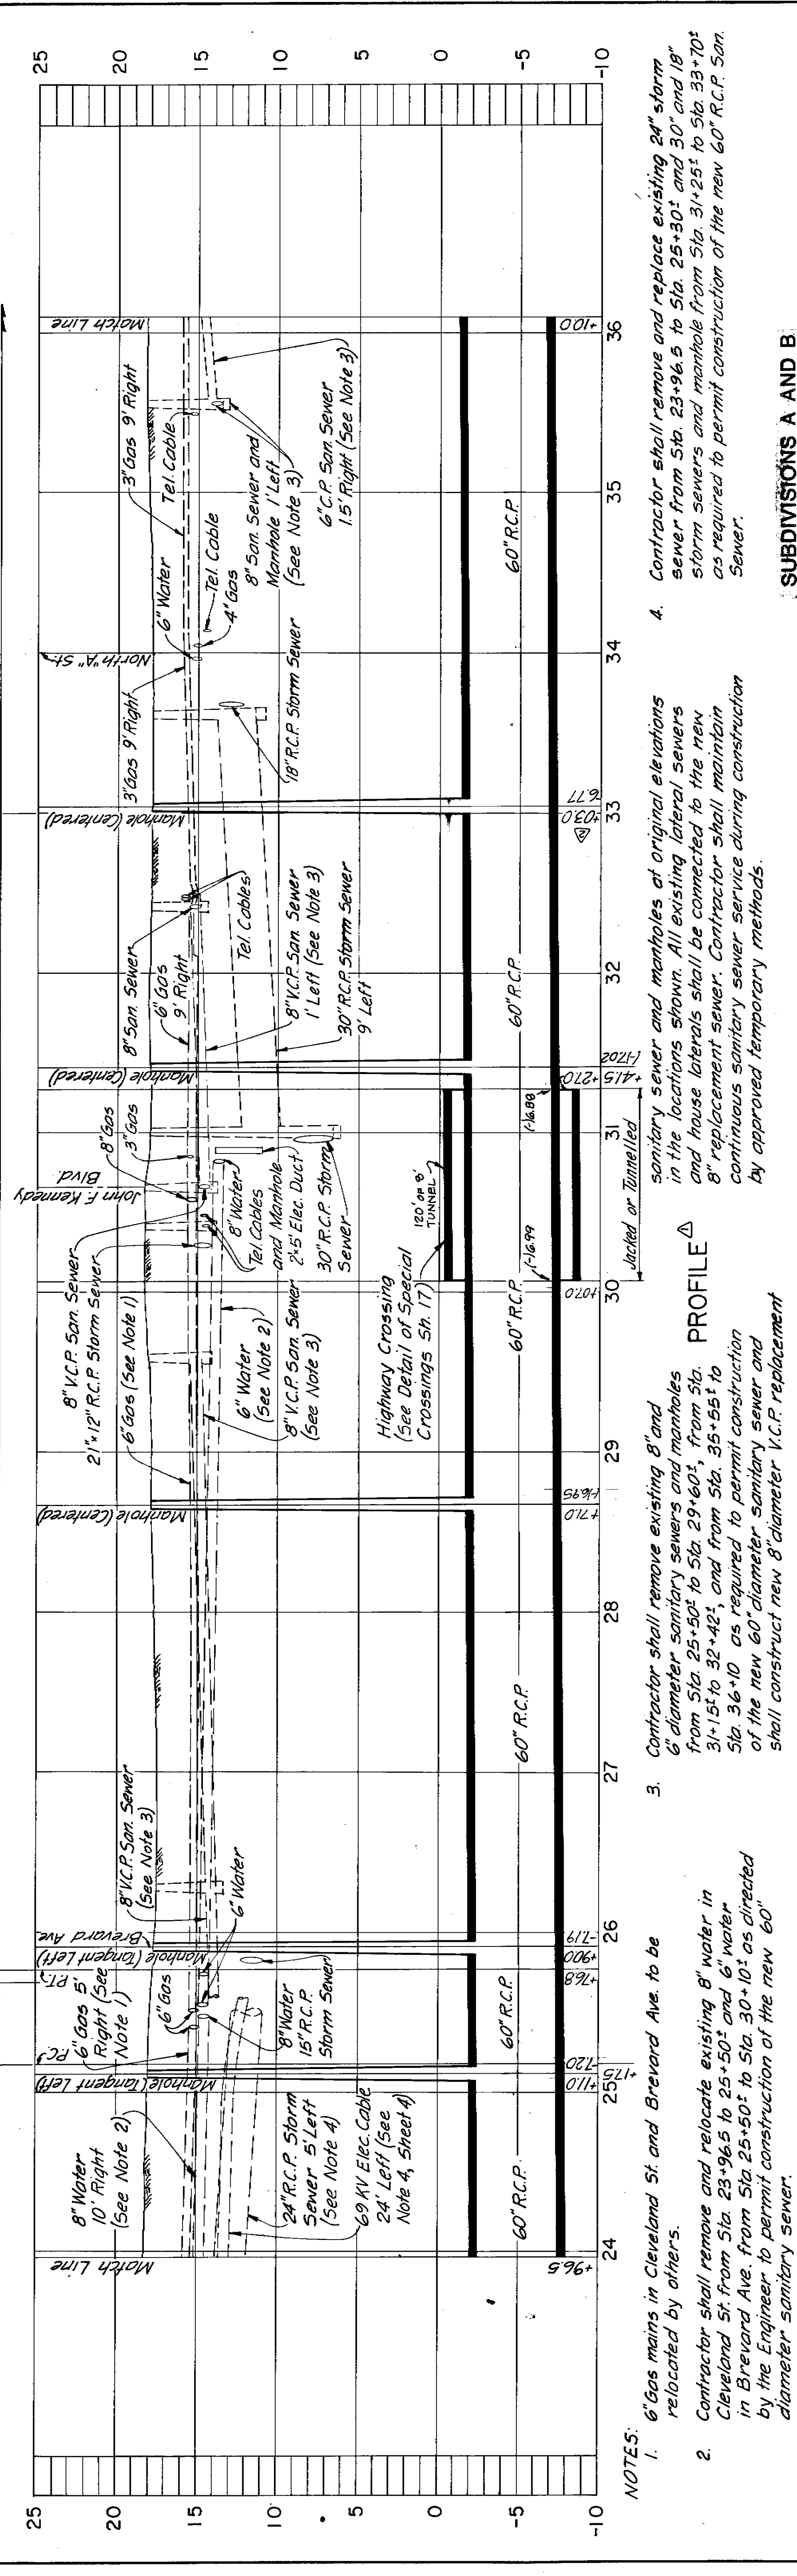 25
20
15
10
5
0
-5
-10
Match Line
+96.5
24
8" Water
10' Right
(See Note 2)
24" R.C.P. Storm
Sewer 5' Left
(See Note 4)
69 KV Elec. Cable
24' Left (See
Note 4, Sheet 4)
60" R.C.P.
Manhole (Tangent Left)
25
+11.0
+17.5
-7.20
P.C.
6" Gas 5'
Right (See
Note 1)
6" Gas
8" Water
15" R.C.P.
Storm Sewer
60" R.C.P.
P.T.
+76.8
Manhole (Tangent Left)
+90.0
Brevard Ave.
-7.19
26
6" Water
8" V.C.P. San. Sewer
(See Note 3)
27
60" R.C.P.
28
Manhole (Centered)
+71.0
(-)6.95
29
6" Gas (See Note 1)
6" Water
(See Note 2)
8" V.C.P. San. Sewer
(See Note 3)
Highway Crossing
(See Detail of Special
Crossings Sh. 17)
60" R.C.P.
30
+07.0
(-)6.99
8" V.C.P. San. Sewer
21"x12" R.C.P. Storm Sewer
John F. Kennedy
Blvd.
8" Gas
3" Gas
8" Water
Tel. Cables
and Manhole
2'x5' Elec. Duct
30" R.C.P. Storm
Sewer
120' OF 8'
TUNNEL
Jacked or Tunnelled
31
(-)6.88
+27.0
+41.5
(-)7.02
Manhole (Centered)
8" San. Sewer
6" Gas
9' Right
Tel. Cables
8" V.C.P. San. Sewer
1' Left (See Note 3)
30" R.C.P. Storm Sewer
9' Left
60" R.C.P.
32
Manhole (Centered)
+03.0
-6.77
2
33
3" Gas 9' Right
18" R.C.P. Storm Sewer
North "A" St.
34
6" Water
Tel. Cable
4" Gas
3" Gas 9' Right
Tel. Cable
8" San. Sewer and
Manhole 1' Left
(See Note 3)
6" C.P. San. Sewer
1.5' Right (See Note 3)
60" R.C.P.
35
36
Match Line
+10.0
25
20
15
10
5
0
-5
-10
PROFILE
NOTES:
1. 6" Gas mains in Cleveland St. and Brevard Ave. to be
relocated by others.
2. Contractor shall remove and relocate existing 8" water in
Cleveland St. from Sta. 23+96.5 to 25+50± and 6" water
in Brevard Ave. from Sta. 25+50± to Sta. 30+10± as directed
by the Engineer to permit construction of the new 60"
diameter sanitary sewer.
3. Contractor shall remove existing 8" and
6" diameter sanitary sewers and manholes
from Sta. 25+50± to Sta. 29+60±, from Sta.
31+15± to 32+42±, and from Sta. 35+55± to
Sta. 36+10 as required to permit construction
of the new 60" diameter sanitary sewer and
shall construct new 8" diameter V.C.P. replacement
sanitary sewer and manholes at original elevations
in the locations shown. All existing lateral sewers
and house laterals shall be connected to the new
8" replacement sewer. Contractor shall maintain
continuous sanitary sewer service during construction
by approved temporary methods.
4. Contractor shall remove and replace existing 24" storm
sewer from Sta. 23+96.5 to Sta. 25+30± and 30" and 18"
storm sewers and manhole from Sta. 31+25± to Sta. 33+70±
as required to permit construction of the new 60" R.C.P. San.
Sewer.
SUBDIVISIONS A AND B